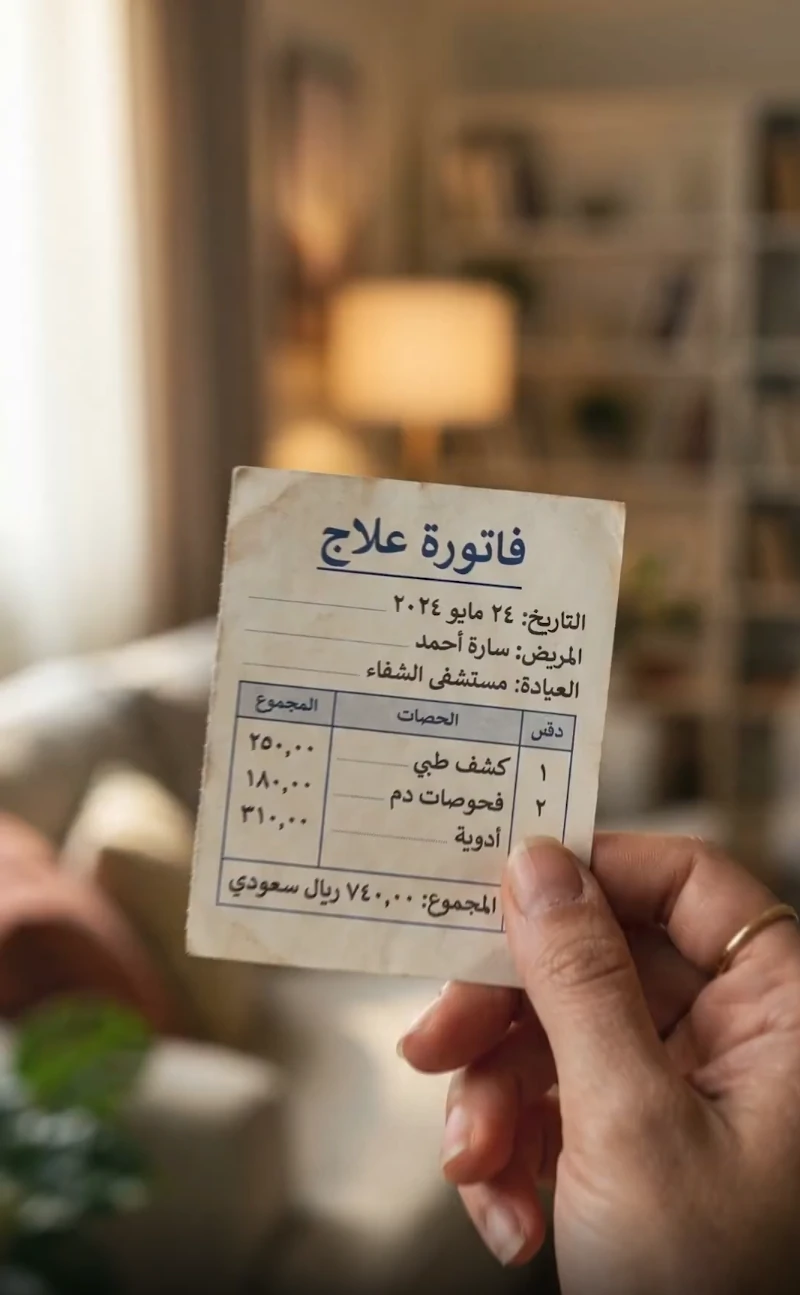 فاتورة علاج
التاريخ: ٢٤ مايو ٢٠٢٤
المريض: سارة أحمد
العيادة: مستشفى الشفاء
دقس الحصات المجموع
١ كشف طبي ٢٥٠,٠٠
٢ فحوصات دم ١٨٠,٠٠
أدوية ٣١٠,٠٠
المجموع: ٧٤٠,٠٠ ريال سعودي